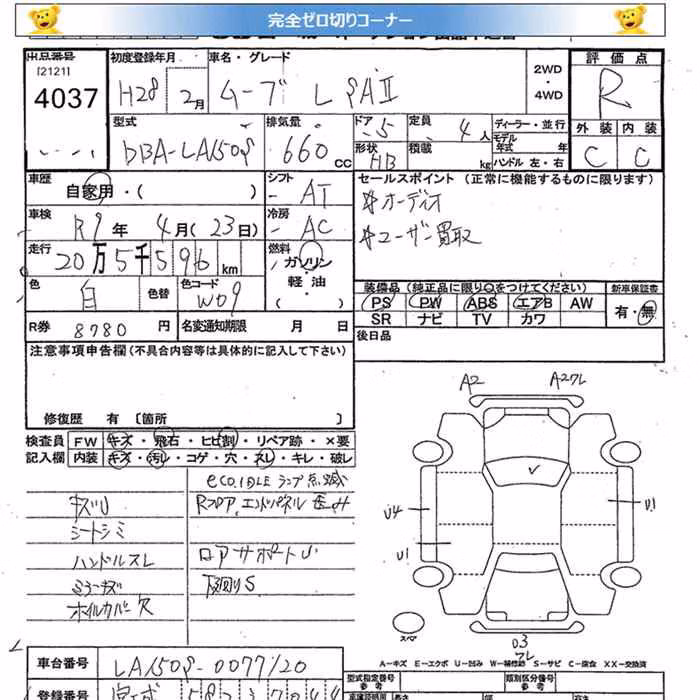 完全ゼロ切りコーナー
出品番号 初度登録年月 車名・グレード 評価点
[2121]
4037 H28 2月 ムーブ L SAⅡ 2WD・4WD R
型式 排気量 ドア 定員 ディーラー・並行 外装 内装
DBA-LA150S 660 CC 5 4人 モデル年式 年 C C
形状 HB 積載 kg ハンドル 左・右
車歴 自家用・( ) シフト AT セールスポイント (正常に機能するものに限ります)
車検 R9年 4月(23日) 冷房 AC *オーディオ
*ユーザー買取
走行 20万5千596km 燃料 ガソリン・軽油( )
装備品 (純正品に限り○をつけてください) 新車保証書
色 白 色替 色コード W09 PS PW ABS エアB AW 有・無
SR ナビ TV カワ
R券 8780円 名変通知期限 月 日 後日品
注意事項申告欄(不具合内容等は具体的に記入して下さい)
A2 A2フレ
修復歴 有 〔箇所 〕
検査員 FW キズ・飛石・ヒビ割・リペア跡・×要
記入欄 内装 キズ・汚レ・コゲ・穴・スレ・キレ・破レ
eco.IDLE ランプ点滅
キズU Rフロア,エンドパネル歪み
シートシミ
ハンドルスレ ロアサポートU
ミラーキズ 下回りS
ホイルカバー欠
U4 U1
U1
スペア
03
フレ
A－キズ E－エクボ U－凹み W－補修跡 S－サビ C－腐食 XX－交換済
車台番号 LA150S-0077120 型式指定番号 類別区分番号
参考 参考
登録番号